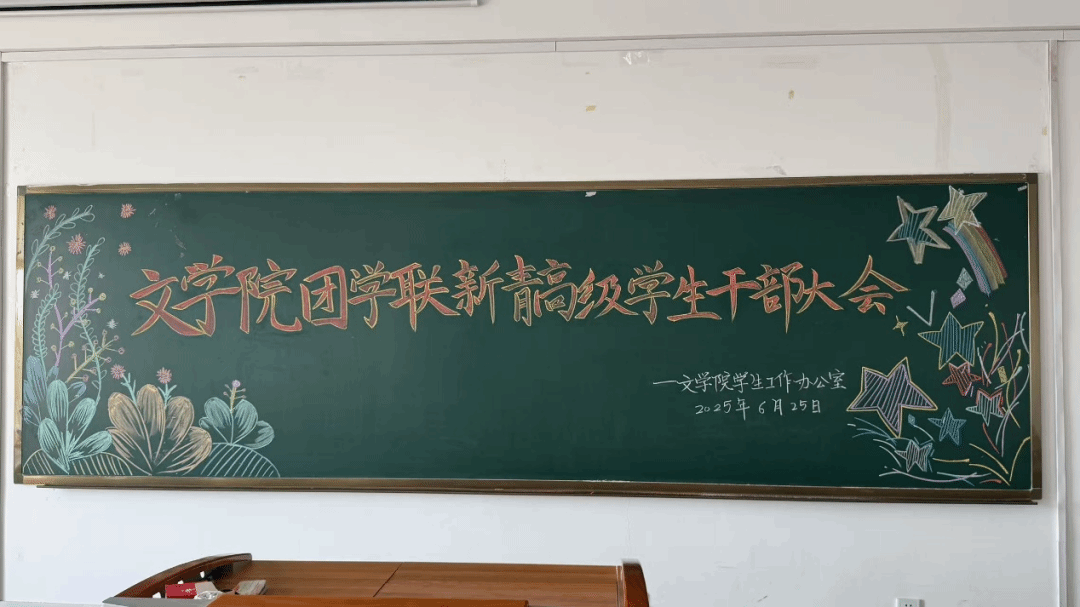 文学院团学联新青高级学生干部大会
—文学院学生工作办公室
2025年6月25日